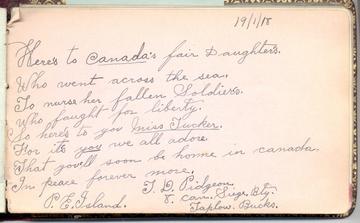 19/1/18
Here's to Canada's fair Daughters.
Who went across the sea.
To nurse her fallen Soldiers.
Who fought for liberty.
So here's to you miss Tucker.
For its you we all adore.
That you'll soon be home in canada.
In peace forever more.
T. D. Pidgeon.
P. E. Island.
8. can. Siege. Bty.
Taplow, Bucks.